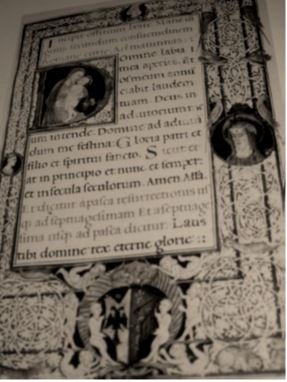 Incipit offitium beate Marie
secundum consuetudinem
Romane curie. Ad matutinas.
Omine labia
mea aperies. Et
os meum annū
ciabit laudem
tuam. Deus in
adiutorium
um intende. Domine ad adiuuā
dum me festina. Gloria patri et
filio et spiritui sancto. Sicut er
at in principio et nunc et semper:
et in secula seculorum. Amen Alla.
Et dicitur a pasca resurrectionis
usq; ad septuagesimam. Et a septuage
sima usq; ad pasca dicitur. Laus
tibi domine rex eterne glorie::